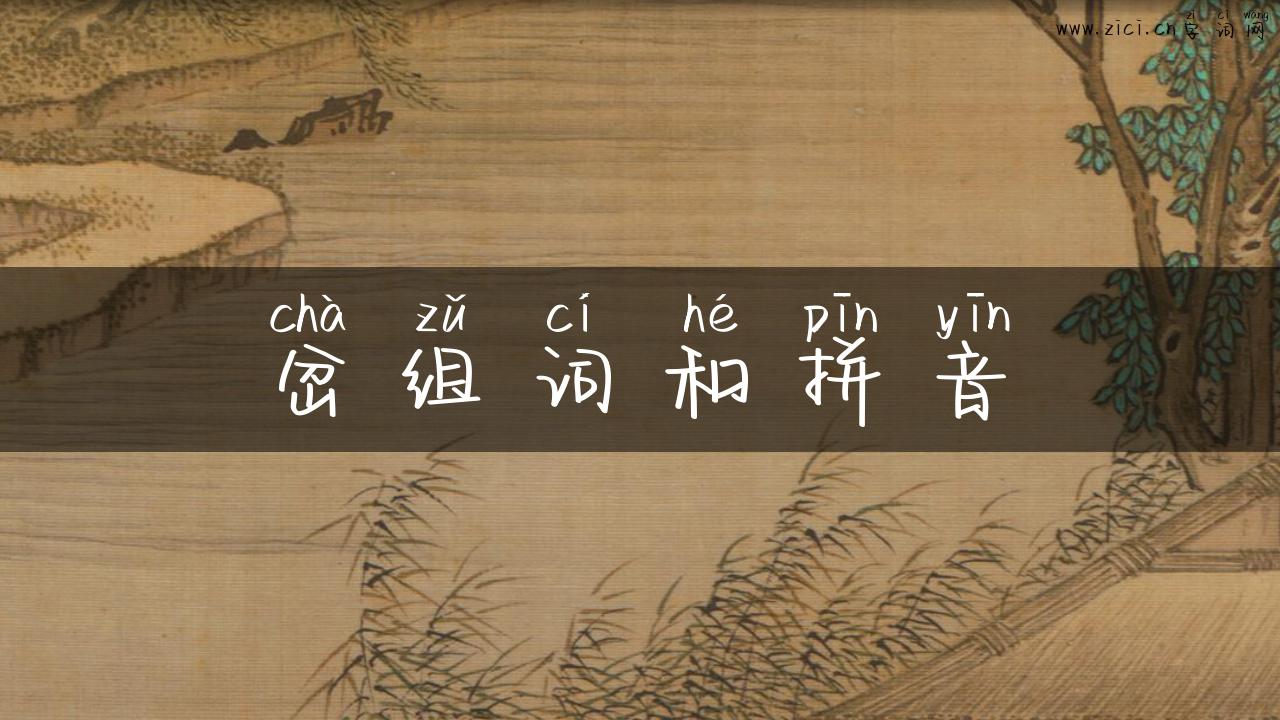 zì cí wǎng
www.zici.cn字词网
chà zǔ cí hé pīn yīn
岔组词和拼音